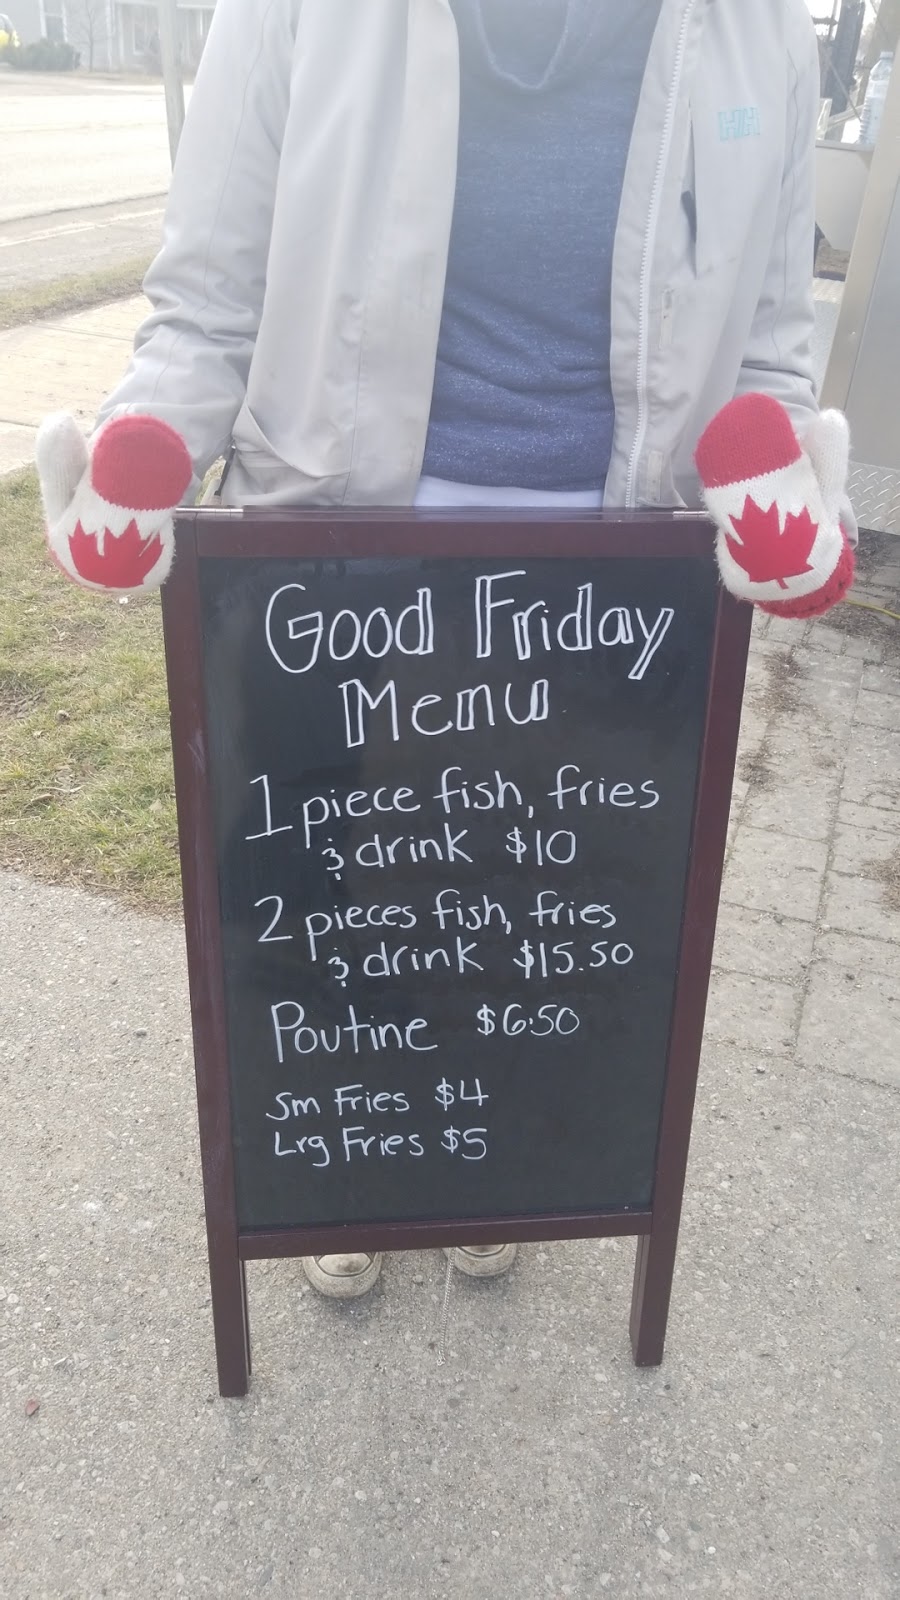 Good Friday
Menu
1 piece fish, fries
& drink $10
2 pieces fish, fries
& drink $15.50
Poutine $6.50
Sm Fries $4
Lrg Fries $5